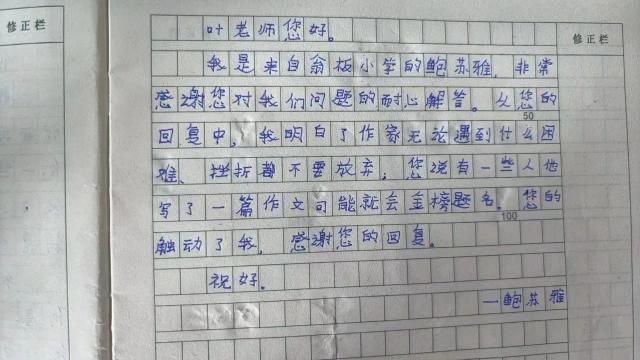 修正栏
叶老师您好。
修正栏
我是来自翁板小学的鲍苏雅，非常
感谢您对我们问题的耐心解答。从您的
50
回复中，我明白了作家无论遇到什么困
难、挫折都不要放弃；您说有一些人他
写了一篇作文可能就会金榜题名。您的
100
触动了我，感谢您的回复。
祝好。
一鲍苏雅